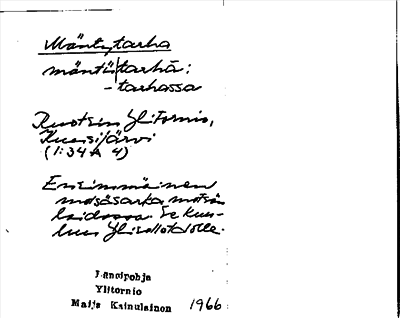 Mäntytarha
mäntü|tarhā:
- tarhassa
Ruotsin Ylitornio,
Kuusijärvi
(1:34 A 4)
Ensimmäinen
metsäsarka metsän
laidassa. Se kuu-
luu Ylisollotalolle.
Kansipohja
Ylitornio
Maija Kainulainen 1966